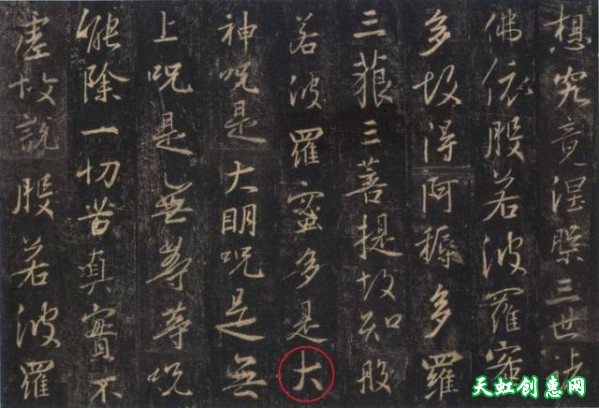 想究竟涅槃三世諸
佛依般若波羅蜜
多故得阿耨多羅
三藐三菩提故知般
若波羅蜜多是大
神呪是大明呪是無
上呪是無等等呪
能除一切苦真實不
虛故說般若波羅
天虹创惠网